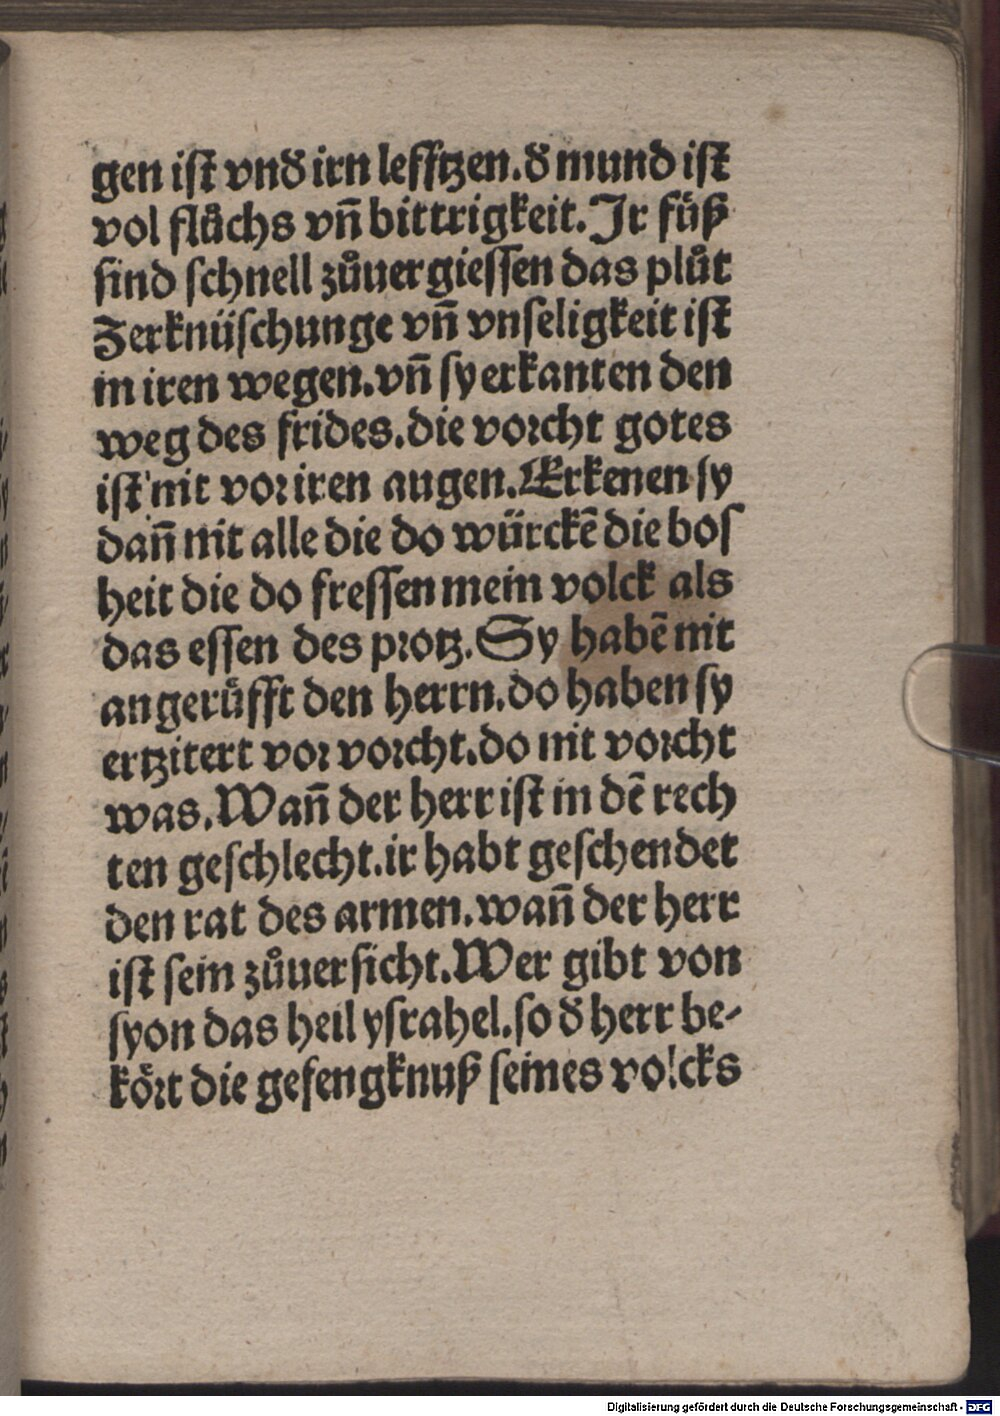 gen iſt vnđ irn lefftzen.đ mund iſt
vol flůchs vñ bittrigkeit.Jr füſz
ſind ſchnell zůuergieſſen das plůt
Zerknüſchunge vñ vnſeligkeit iſt
in iren wegen.vñ ſy erkanten den
weg des frides.die voꝛcht gotes
iſt nit voꝛ iren augen.Erkenen ſy
dañ nit alle die do würckē die boſ
heit die do freſſen mein volck als
das eſſen des pꝛotz.Sy habē nit
angerůfft den herrn.do haben ſy
ertzitert voꝛ voꝛcht.do nit voꝛcht
was.Wañ der herr iſt in dē rech
ten geſchlecht.ir habt geſchendet
den rat des armen.wañ der herr
iſt ſein zůuerſicht.Wer gibt von
ſyon das heil yſrahel.ſo đ herr be⸗
köꝛt die gefengknuſz ſeines volcks
Digitalisierung gefördert durch die Deutsche Forschungsgemeinschaft - DFG